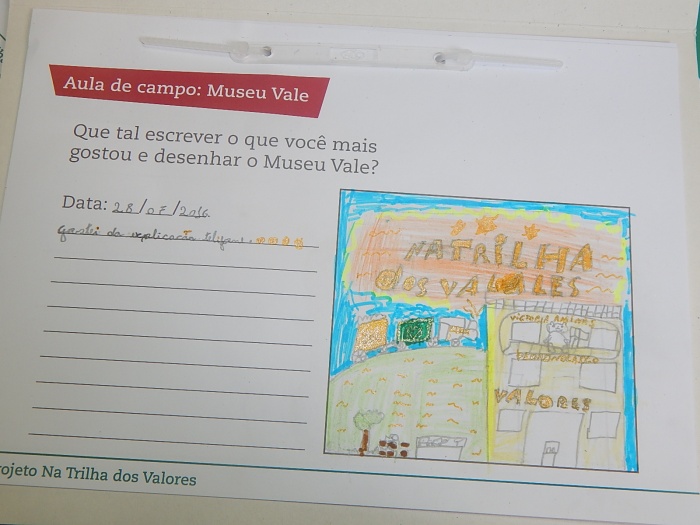 Aula de campo: Museu Vale
Que tal escrever o que você mais
gostou e desenhar o Museu Vale?
Data: 28/07/2016
gostei da explicação
NATRILHA
dos VALORES
VALORES
ojeto Na Trilha dos Valores